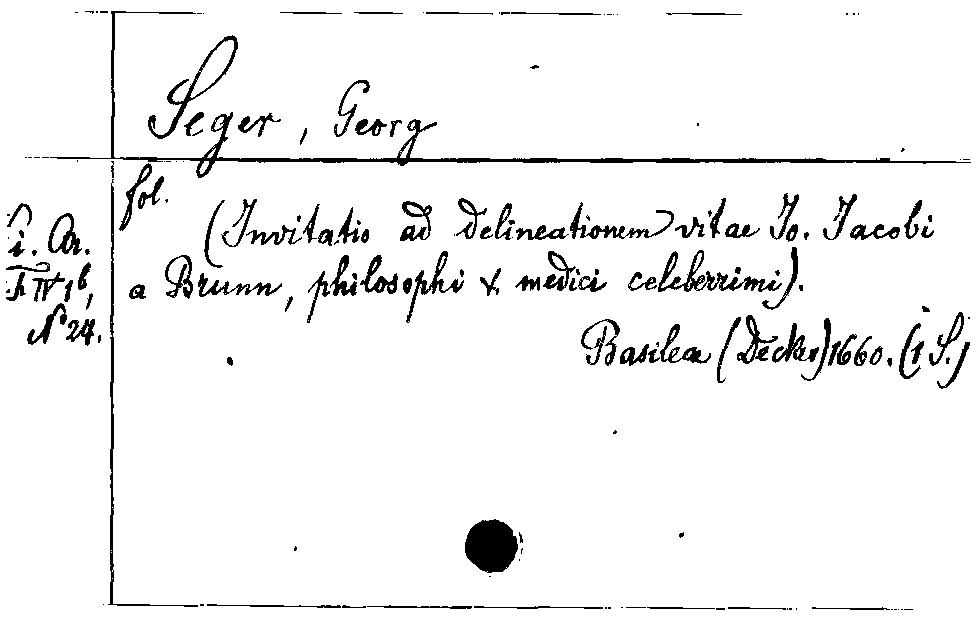 Seger, Georg
fol.
(Invitatio ad delineationem vitae Jo. Jacobi
a Brunn, philosophi & medici celeberrimi).
Basileae (Decker) 1660. (1 S.)
Ki. Ar.
F IV 1b,
No 24.